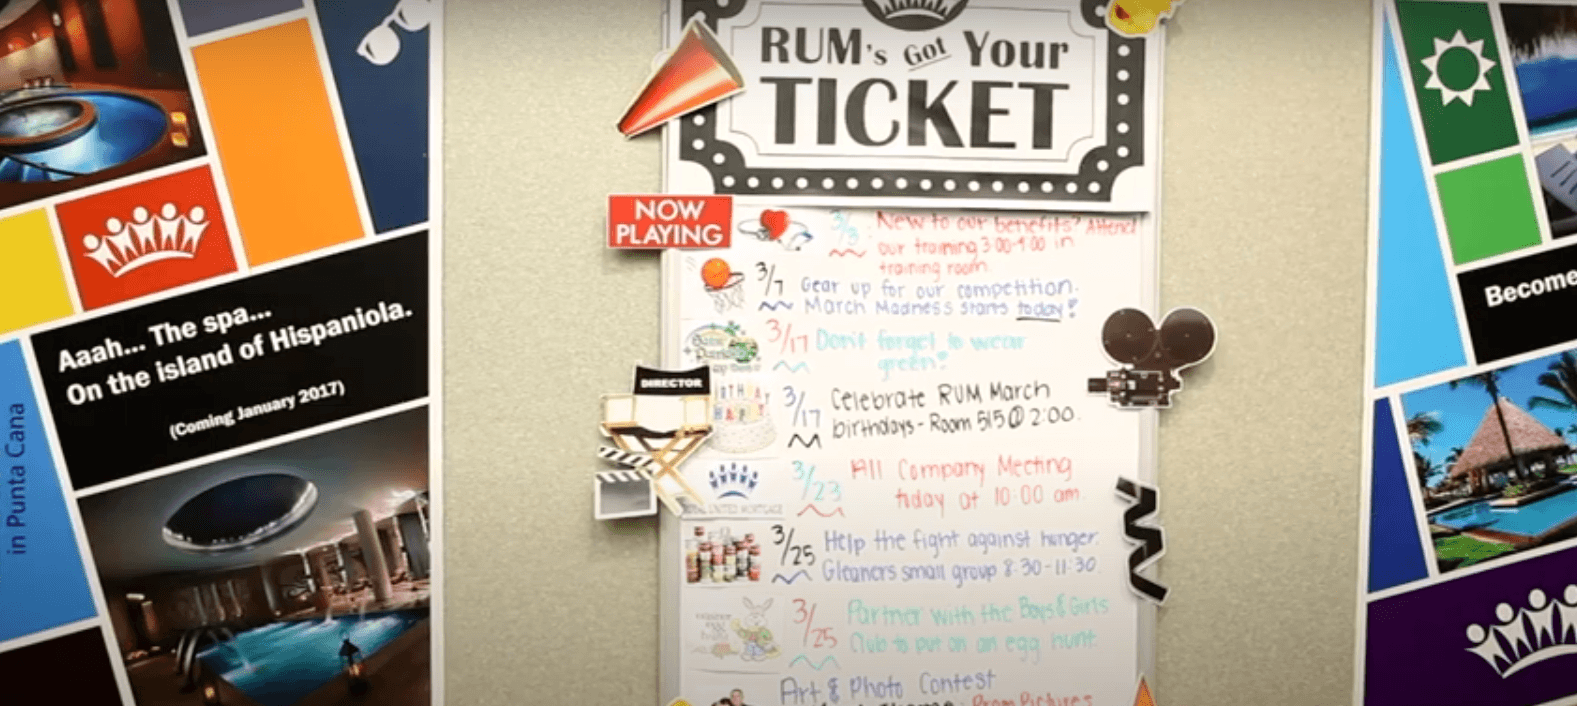 in Punta Cana
Aaah... The spa...
On the island of Hispaniola.
(Coming January 2017)
RUM's Got Your
TICKET
NOW
PLAYING
3/3 New to our benefits? Attend
our training 3:00-4:00 in
training room.
3/7 Gear up for our competition.
March Madness starts today!
3/17 Don't forget to wear
green!
DIRECTOR
BIRTHDAY
HAPPY
3/17 Celebrate RUM March
birthdays - Room 515 @ 2:00.
3/23 All Company Meeting
today at 10:00 am
UNITED MORTGAGE
3/25 Help the fight against hunger.
Gleaners small group 8:30-11:30
3/25 Partner with the Boys & Girls
Club to put on an egg hunt.
Art & Photo Contest
Prom Pictures
Become